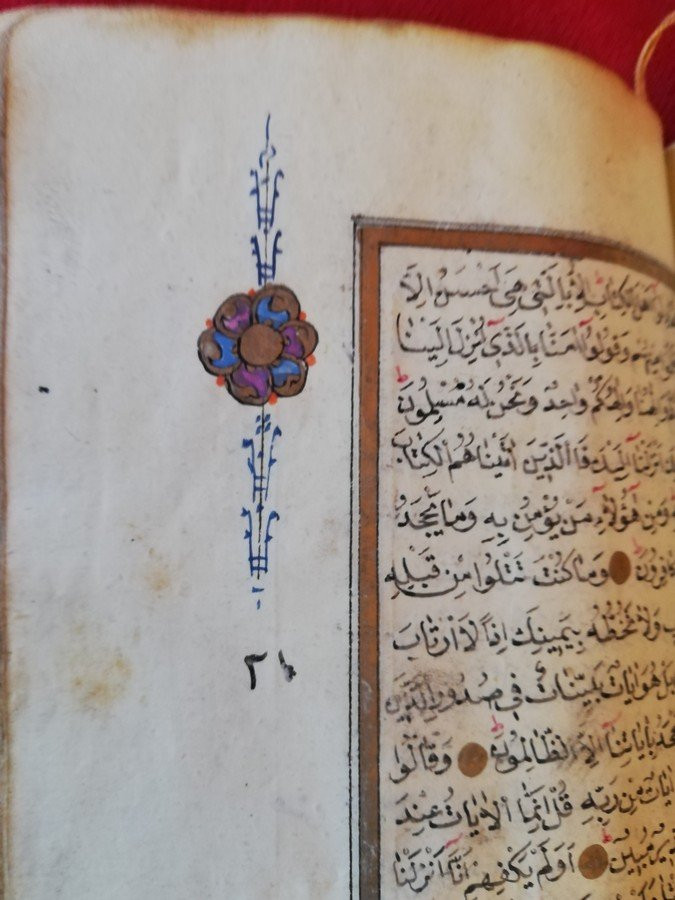 الْكِتَابِ اِلَّا بِالَّتى هِىَ اَحْسَنُ اِلَّا
مِنْهُمْ وَقُولُوا اٰمَنَّا بِالَّذٖى اُنْزِلَ اِلَيْنَا
وَاِلٰهُكُمْ وَاحِدٌ وَنَحْنُ لَهُ مُسْلِمُونَ
اَنْزَلْنَا اِلَيْكَ فَالَّذٖينَ اٰتَيْنَاهُمُ الْكِتَابَ
وَمِنْ هٰؤُلَاءِ مَنْ يُؤْمِنُ بِهِ وَمَا يَجْحَدُ
وَمَا كُنْتَ تَتْلُوا مِنْ قَبْلِهِ
وَلَا تَخُطُّهُ بِيَمٖينِكَ اِذًا لَارْتَابَ
بَلْ هُوَ اٰيَاتٌ بَيِّنَاتٌ فٖى صُدُورِ الَّذٖينَ
بِاٰيَاتِنَا اِلَّا الظَّالِمُونَ وَقَالُوا
اٰيَاتٌ مِنْ رَبِّهِ قُلْ اِنَّمَا الْاٰيَاتُ عِنْدَ
مُبٖينٌ اَوَلَمْ يَكْفِهِمْ اَنَّا اَنْزَلْنَا
٢١